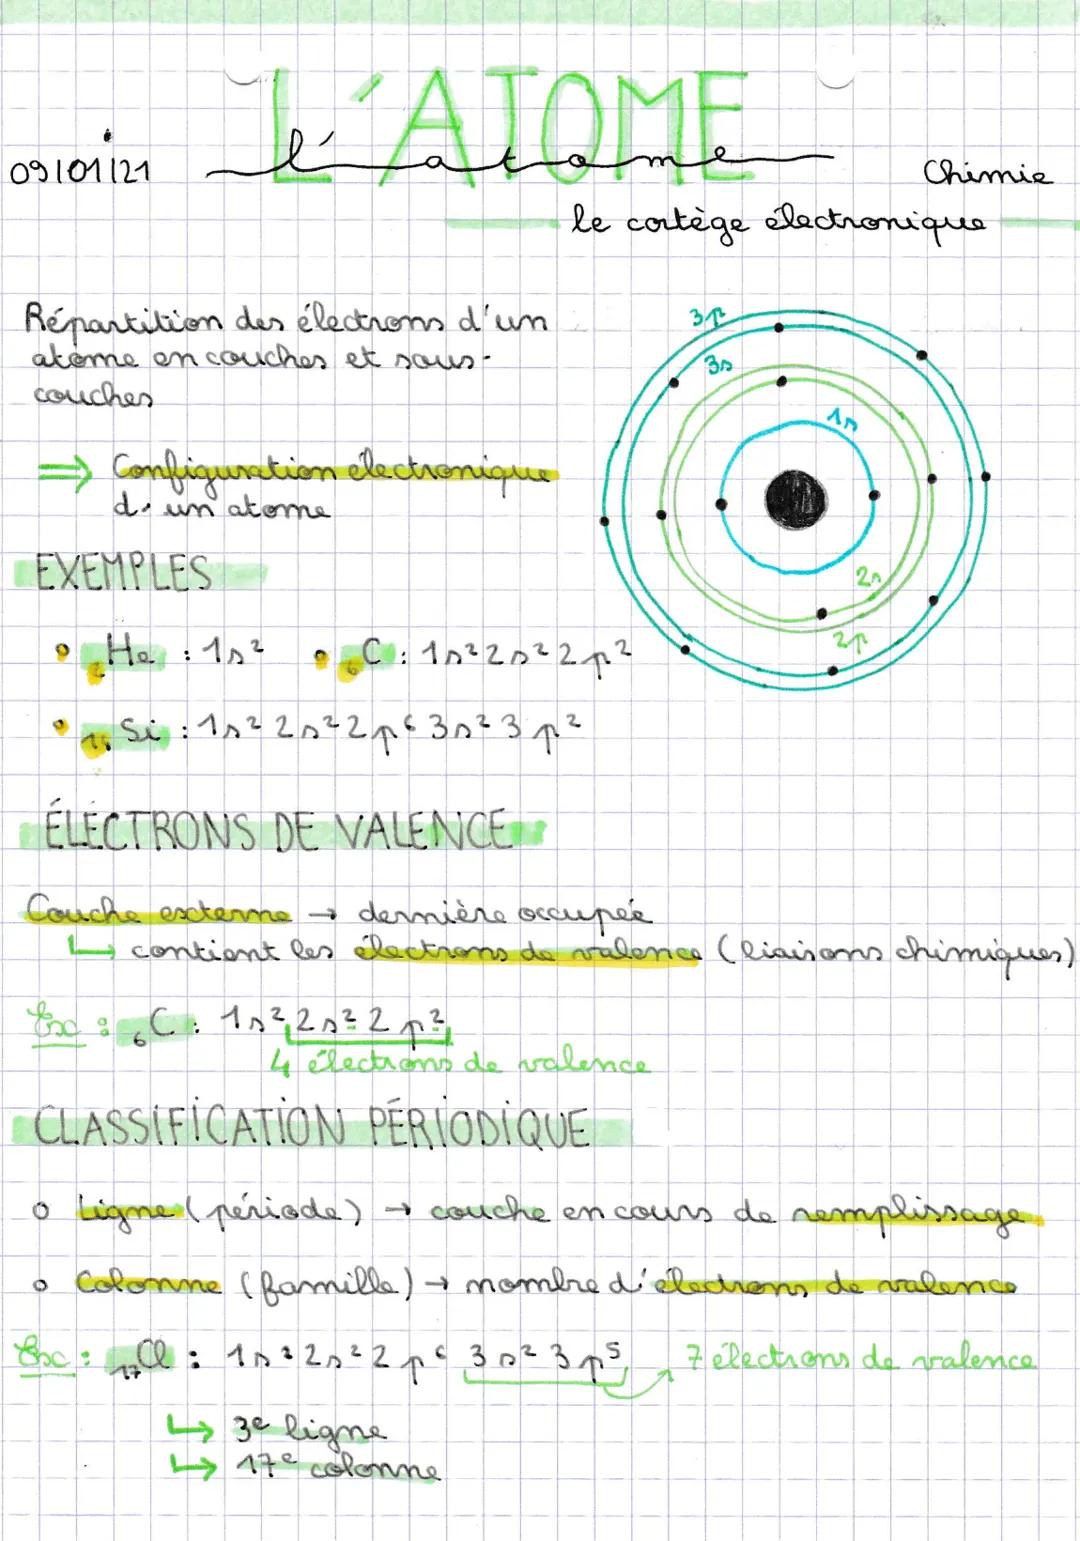 L'ATOME
09/01/21
l'atome
Chimie
le cortège électronique
Répartition des électrons d'un
atome en couches et sous-
couches
⇒ Configuration électronique
d'un atome
3p
3s
1s
2s
2p
EXEMPLES
₂He : 1s² • ₆C : 1s² 2s² 2p²
• ₁₄Si : 1s² 2s² 2p⁶ 3s² 3p²
ÉLECTRONS DE VALENCE
Couche externe → dernière occupée
↳ contient les électrons de valence (liaisons chimiques)
Ex : ₆C : 1s² 2s² 2p²
4 électrons de valence
CLASSIFICATION PÉRIODIQUE
o Ligne (période) → couche en cours de remplissage
o Colonne (famille) → nombre d'électrons de valence
Ex : ₁₇Cl : 1s² 2s² 2p⁶ 3s² 3p⁵ → 7 électrons de valence
↳ 3e ligne
↳ 17e colonne